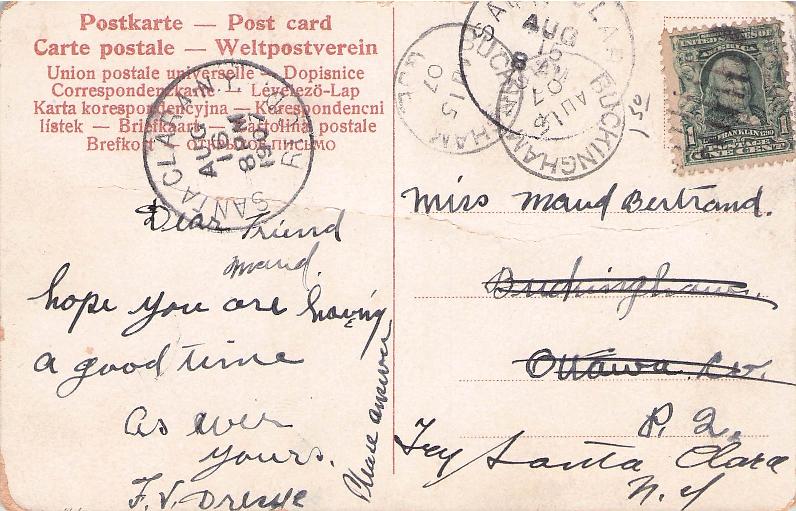 Postkarte — Post card
Carte postale — Weltpostverein
Union postale universelle — Dopisnice
Correspondenzkarte — Levelező-Lap
Karta korespondencyjna — Korespondencni
lístek — Briefkaart — Cartolina postale
Brefkort — открытое письмо
SANTA CLARA N.Y.
AUG
16
8 AM
1907
REC'D
BUCKINGHAM
AU 15
07
BUCKINGHAM
AU 16
07
AUG
16
8 AM
07
1 50
UNITED STATES OF AMERICA
FRANKLIN
1
Miss Maud Bertrand.
Buckingham.
Ottawa Riv.
P. Q.
Try Santa Clara
N. Y
Dear Friend
Maud.
hope you are having
a good time
as ever
yours.
Please answer